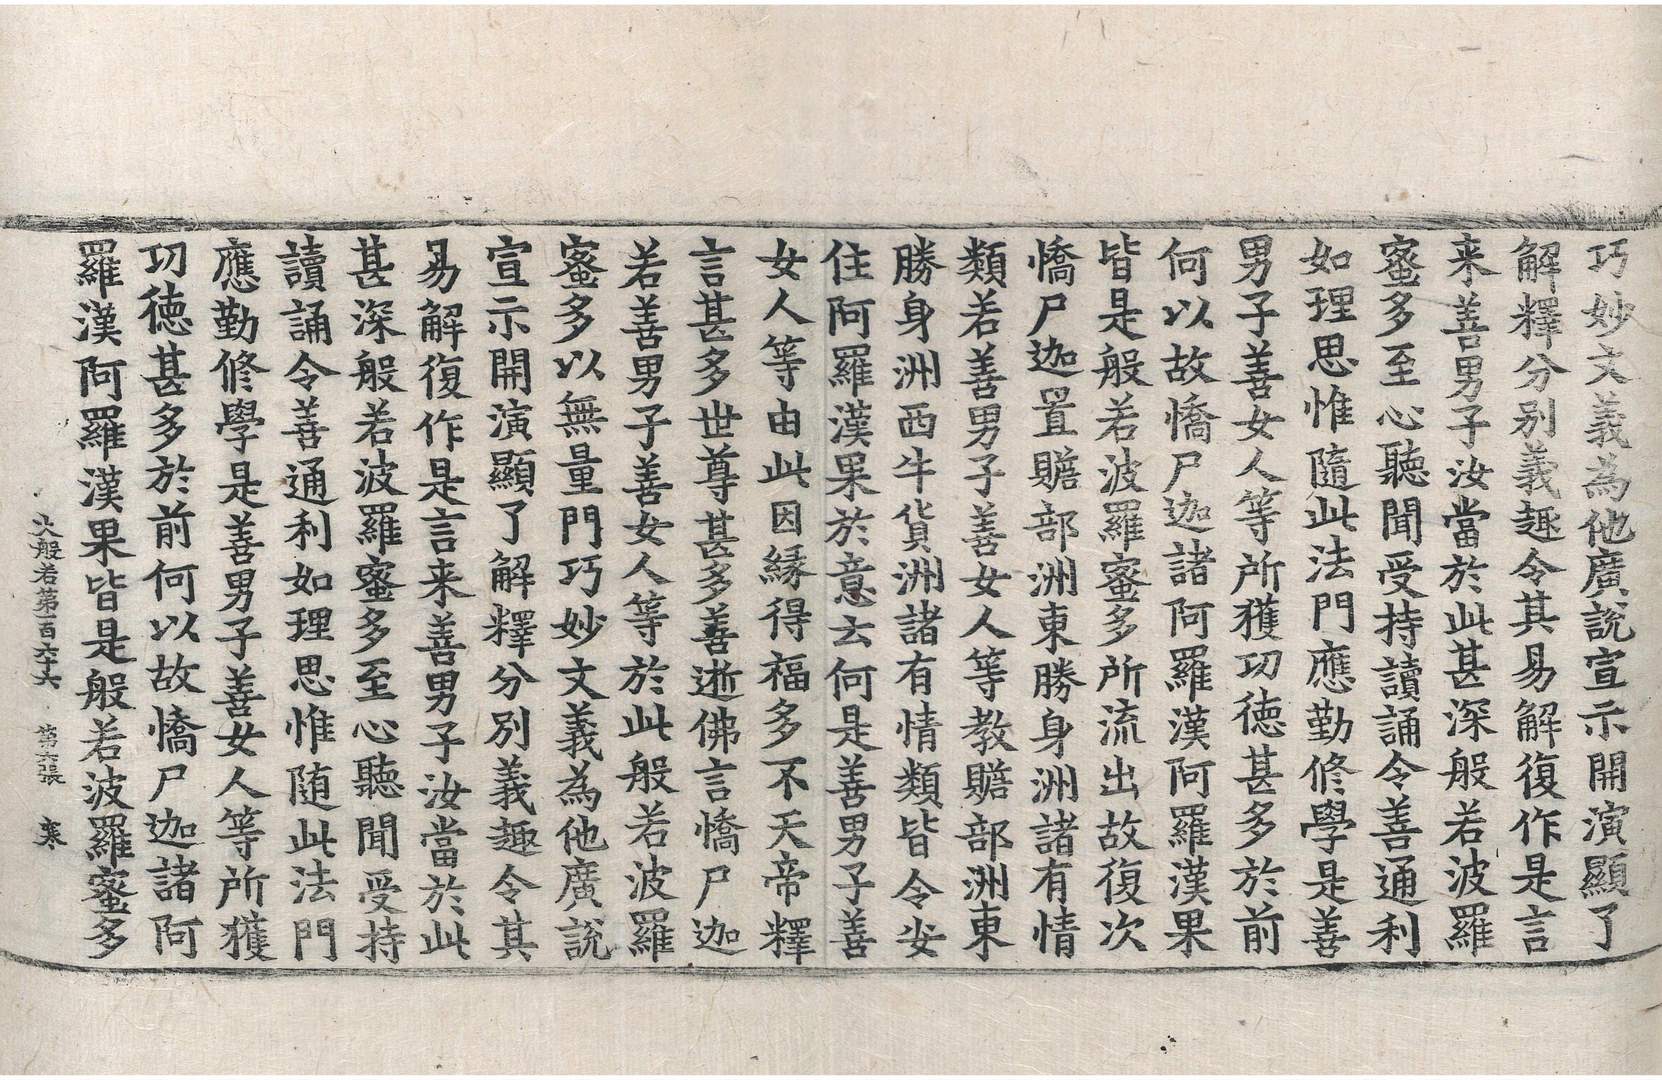 巧妙文義為他廣說宣示開演顯了
解釋分别義趣令其易解復作是言
来善男子汝當於此甚深般若波羅
蜜多至心聽聞受持讀誦令善通利
如理思惟隨此法門應勤修學是善
男子善女人等所獲功德甚多於前
何以故憍尸迦諸阿羅漢阿羅漢果
皆是般若波羅蜜多所流出故復次
憍尸迦置贍部洲東勝身洲諸有情
類若善男子善女人等教贍部洲東
勝身洲西牛貨洲諸有情類皆令安
住阿羅漢果於意云何是善男子善
女人等由此因緣得福多不天帝釋
言甚多世尊甚多善逝佛言憍尸迦
若善男子善女人等於此般若波羅
蜜多以無量門巧妙文義為他廣說
宣示開演顯了解釋分別義趣令其
易解復作是言来善男子汝當於此
甚深般若波羅蜜多至心聽聞受持
讀誦令善通利如理思惟随此法門
應勤修學是善男子善女人等所獲
功德甚多於前何以故憍尸迦諸阿
羅漢阿羅漢果皆是般若波羅蜜多
大般若第一百六十六 第六張 寒